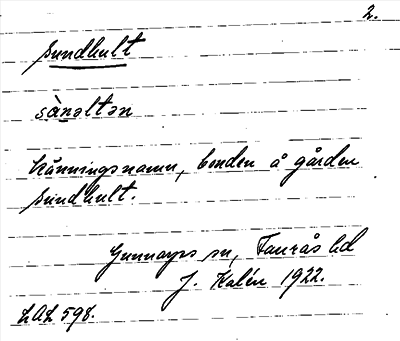 2.
Sundhult
sànəltən
Känningsnamn, bonden å gården
Sundhult.
Gunnarps sn, Faurås hd
J. Kalén 1922.
LAL 598.